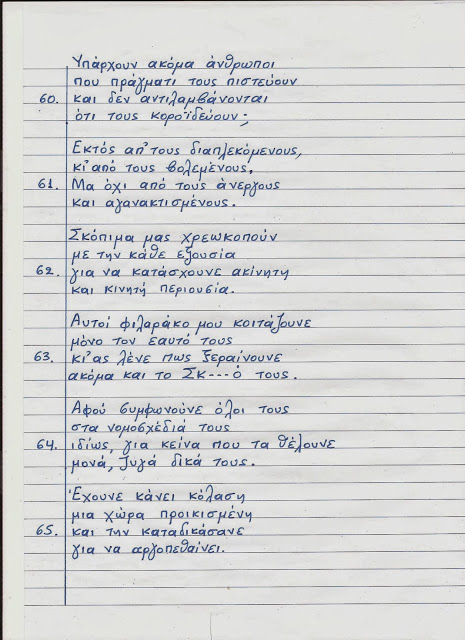 Υπάρχουν ακόμα άνθρωποι
που πράγματι τους πιστεύουν
60. και δεν αντιλαμβάνονται
ότι τους κοροϊδεύουν;
Εκτός απ' τους διαπλεκόμενους,
κι' από τους βολεμένους,
61. Μα όχι από τους άνεργους
και αγανακτισμένους.
Σκόπιμα μας χρεωκοπούν
με την κάθε εξουσία
62. για να κατάσχουνε ακίνητη
και κινητή περιουσία.
Αυτοί φιλαράκο μου κοιτάζουνε
μόνο τον εαυτό τους
63. κι' ας λένε πως ξεραίνουνε
ακόμα και το Σκ---ό τους.
Αφού συμφωνούνε όλοι τους
στα νομοσχέδιά τους
64. ιδίως, για κείνα που τα θέλουνε
μονά, ζυγά δικά τους.
Έχουνε κάνει κόλαση
μια χώρα προικισμένη
65. και την καταδικάσανε
για να αργοπεθαίνει.